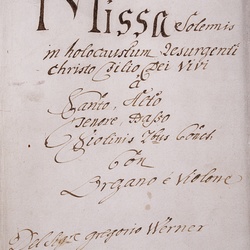 Missa Solennis
in holocaustum Resurgenti
Christo Filio Dei Vivi
à
Canto, Alto
Tenore, Basso
Violinis 2bus Conc
Con
Organo è Violone
Del Sigre Gregorio Werner